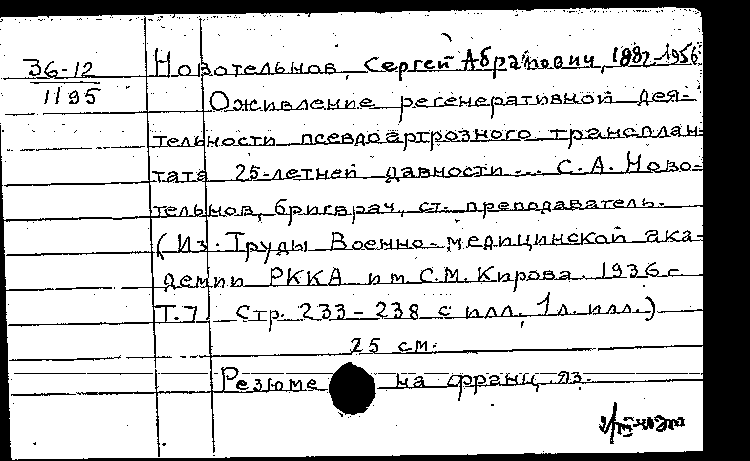 36-12
1195
Новотельнов, Сергей Абрамович, 1882-1956
Оживление регенеративной дея-
тельности псевдоартрозного трансплан-
тата 25-летней давности... С.А. Ново-
тельнов, бригврач, ст. преподаватель.
(Из: Труды Военно-медицинской ака-
демии РККА им. С.М. Кирова. 1936 г.
Т.7. Стр. 233-238 с илл., 1 л. илл.)
25 см.
Резюме на франц. яз.